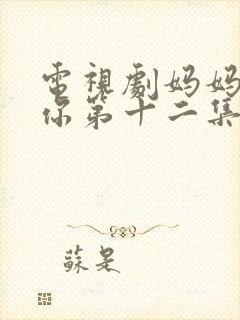 電視劇妈妈
你第十二集
蘇是